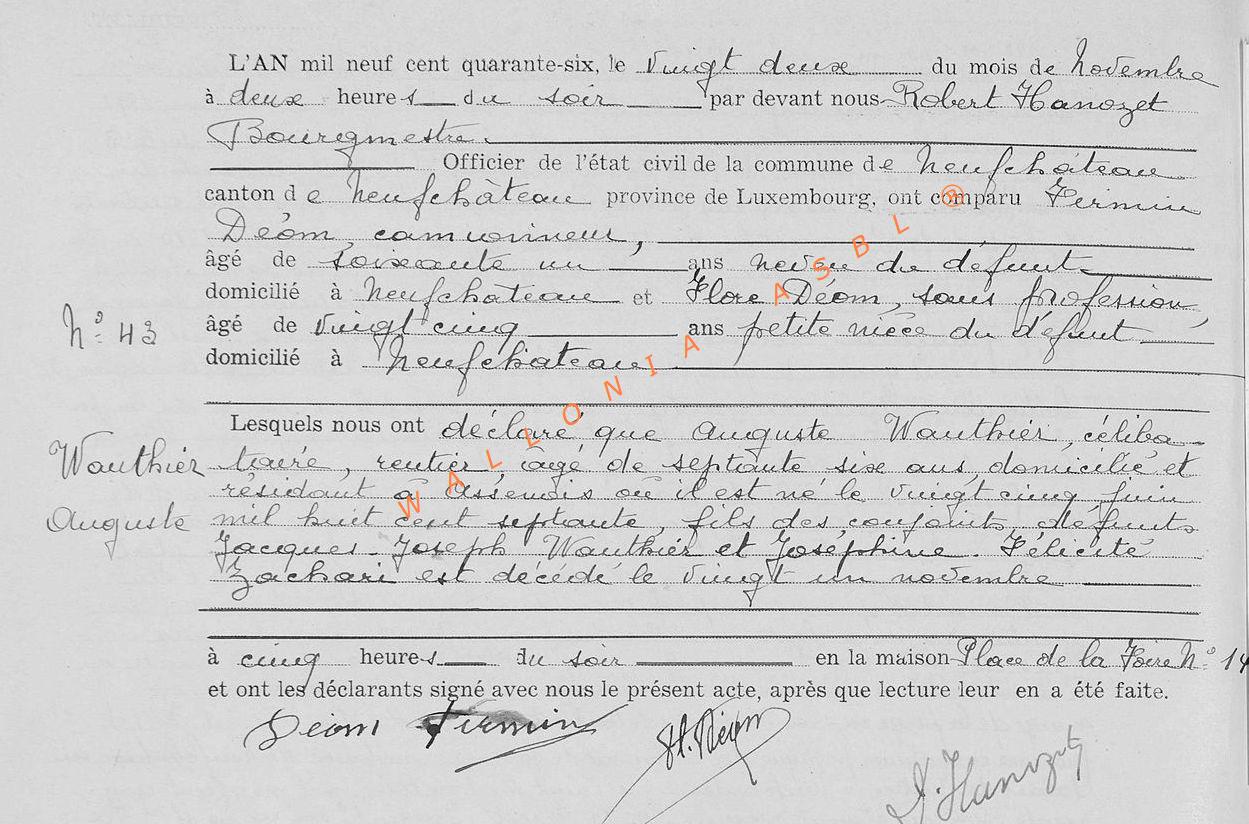 L'AN mil neuf cent quarante-six, le vingt deux du mois de Novembre
à deux heures du soir par devant nous Robert Hanozet
Bourgmestre.
Officier de l'état civil de la commune de Neufchâteau
canton de Neufchâteau province de Luxembourg, ont comparu Firmin
Déom, camionneur,
âgé de soixante un ans neveu du défunt
domicilié à Neufchateau et Flore Déom, sans profession
N° 43
âgé de vingt cinq ans petite nièce du défunt
domicilié à Neufchateau
Lesquels nous ont déclaré que Auguste Wauthier, céliba-
Wauthier
Auguste
taire, rentier âgé de septante six ans, domicilié et
résidant à Assenois où il est né le vingt cinq juin
mil huit cent septante, fils des conjoints défunts
Jacques-Joseph Wauthier et Joséphine-Félicité
Zachari est décédé le vingt un novembre
à cinq heures du soir en la maison Place de la Foire N° 14
et ont les déclarants signé avec nous le présent acte, après que lecture leur en a été faite.
Déom Firmin
Fl. Déom
R. Hanozet
WALLONIA ASBL ®